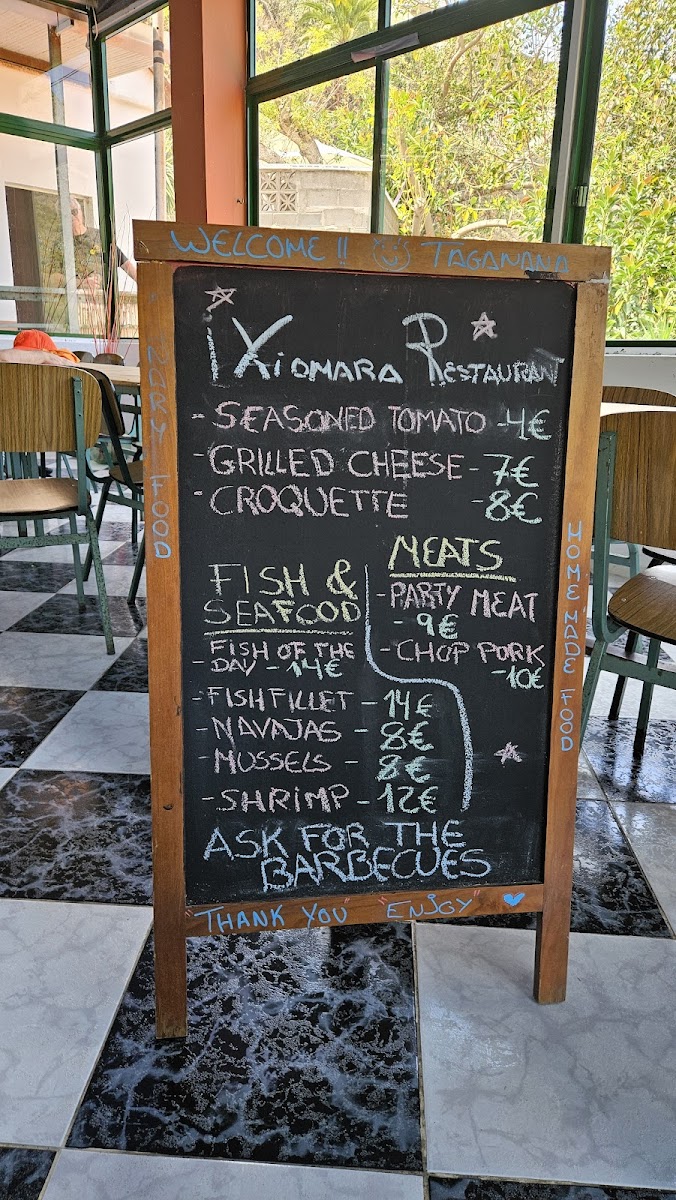 WELCOME!! TAGANANA
XiOMARA RESTAURANT
- SEASONED TOMATO - 4€
- GRILLED CHEESE - 7€
- CROQUETTE - 8€
FISH &
SEAFOOD
- FISH OF THE
DAY - 14€
- FISH FILLET - 14€
- NAVAJAS - 8€
- MUSSELS - 8€
- SHRIMP - 12€
MEATS
- PARTY MEAT
- 9€
- CHOP PORK
- 10€
ASK FOR THE
BARBECUES
FOOD
HOME MADE FOOD
"THANK YOU" "ENJOY"